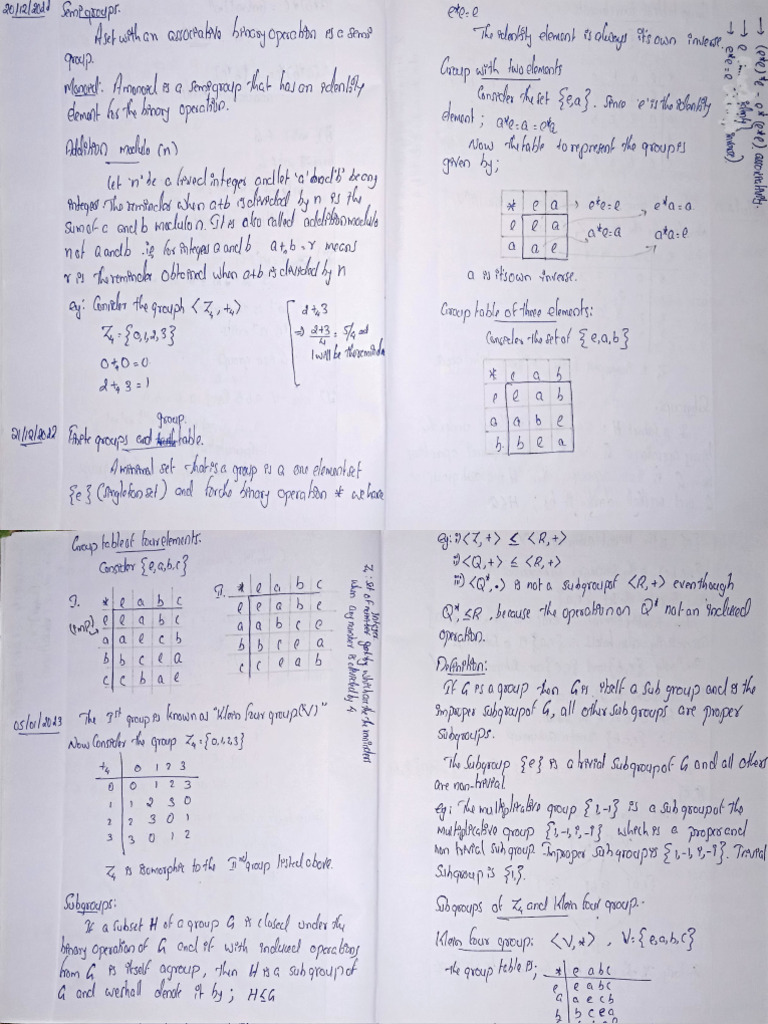 20/12/2022 Semigroups.
A set with an associative binary operation is a semi
group.
Monoid: A monoid is a semigroup that has an identity
element for the binary operation.
Addition modulo (n)
Let 'n' be a fixed integer and let 'a' and 'b' be any
integer. The remainder when a+b is divided by n is the
sum of a and b modulo n. It is also called addition modulo
n of a and b. ie for integer a and b a+ₙb = r means
r is the remainder obtained when a+b is divided by n
eg: Consider the group <Z₄, +₄>
Z₄ = {0,1,2,3}
0+₄0=0
2+₄3=1
2+₄3
⇒ 2+3/4 = 5/4 and
1 will be the remainder
21/12/2022 Finite groups and group table.
A minimal set that is a group is a one element set
{e} (singleton set) and for the binary operation * we have
e*e=e
The identity element is always it's own inverse.
→ (e*e)*e = e*(e*e), associativity.
→ e
→ e*e=e
Group with two elements
Consider the set {e,a}. Since 'e' is the identity
element; a*e=a=e*a
Now the table to represent the group is
given by;
* e a → e*e=e e*a=a
e e a a*e=a
a a e a*a=e
a is it's own inverse.
Group table of three elements:
Consider the set of {e,a,b}
* e a b
e e a b
a a b e
b b e a
Group table of four elements.
Consider {e,a,b,c}
I.
(imp)
* e a b c
e e a b c
a a e c b
b b c e a
c c b a e
II.
* e a b c
e e a b c
a a b c e
b b c e a
c c e a b
05/01/2023 The Iˢᵗ group is known as "Klein four group (V)"
Now Consider the group Z₄={0,1,2,3}
+₄ 0 1 2 3
0 0 1 2 3
1 1 2 3 0
2 2 3 0 1
3 3 0 1 2
Z₄ is Isomorphic to the IIⁿᵈ group listed above.
Subgroups:
If a subset H of a group G is closed under the
binary operation of G and if with induced operations
from G is itself a group, then H is a subgroup of
G and we shall denote it by; H≤G
eg: i) <Z,+> ≤ <R,+>
ii) <Q,+> ≤ <R,+>
iii) <Q*,·> is not a subgroup of <R,+> even though
Q* ⊆ R, because the operation on Q* not an included
operation.
Definition:
If G is a group then G is itself a sub group and is the
improper subgroup of G, all other sub groups are proper
subgroups.
The subgroup {e} is a trivial subgroup of G and all others
are non-trivial.
eg: The multiplicative group {1,-1} is a subgroup of the
multiplicative group {1,-1,i,-i} which is a proper and
non trivial sub group. Improper subgroup is {1,-1,i,-i}. Trivial
subgroup is {1}.
Subgroups of Z₄ and Klein four group.
Klein four group: <V,*>, V={e,a,b,c}
The group table is;
* e a b c
e e a b c
a a e c b
b b c e a